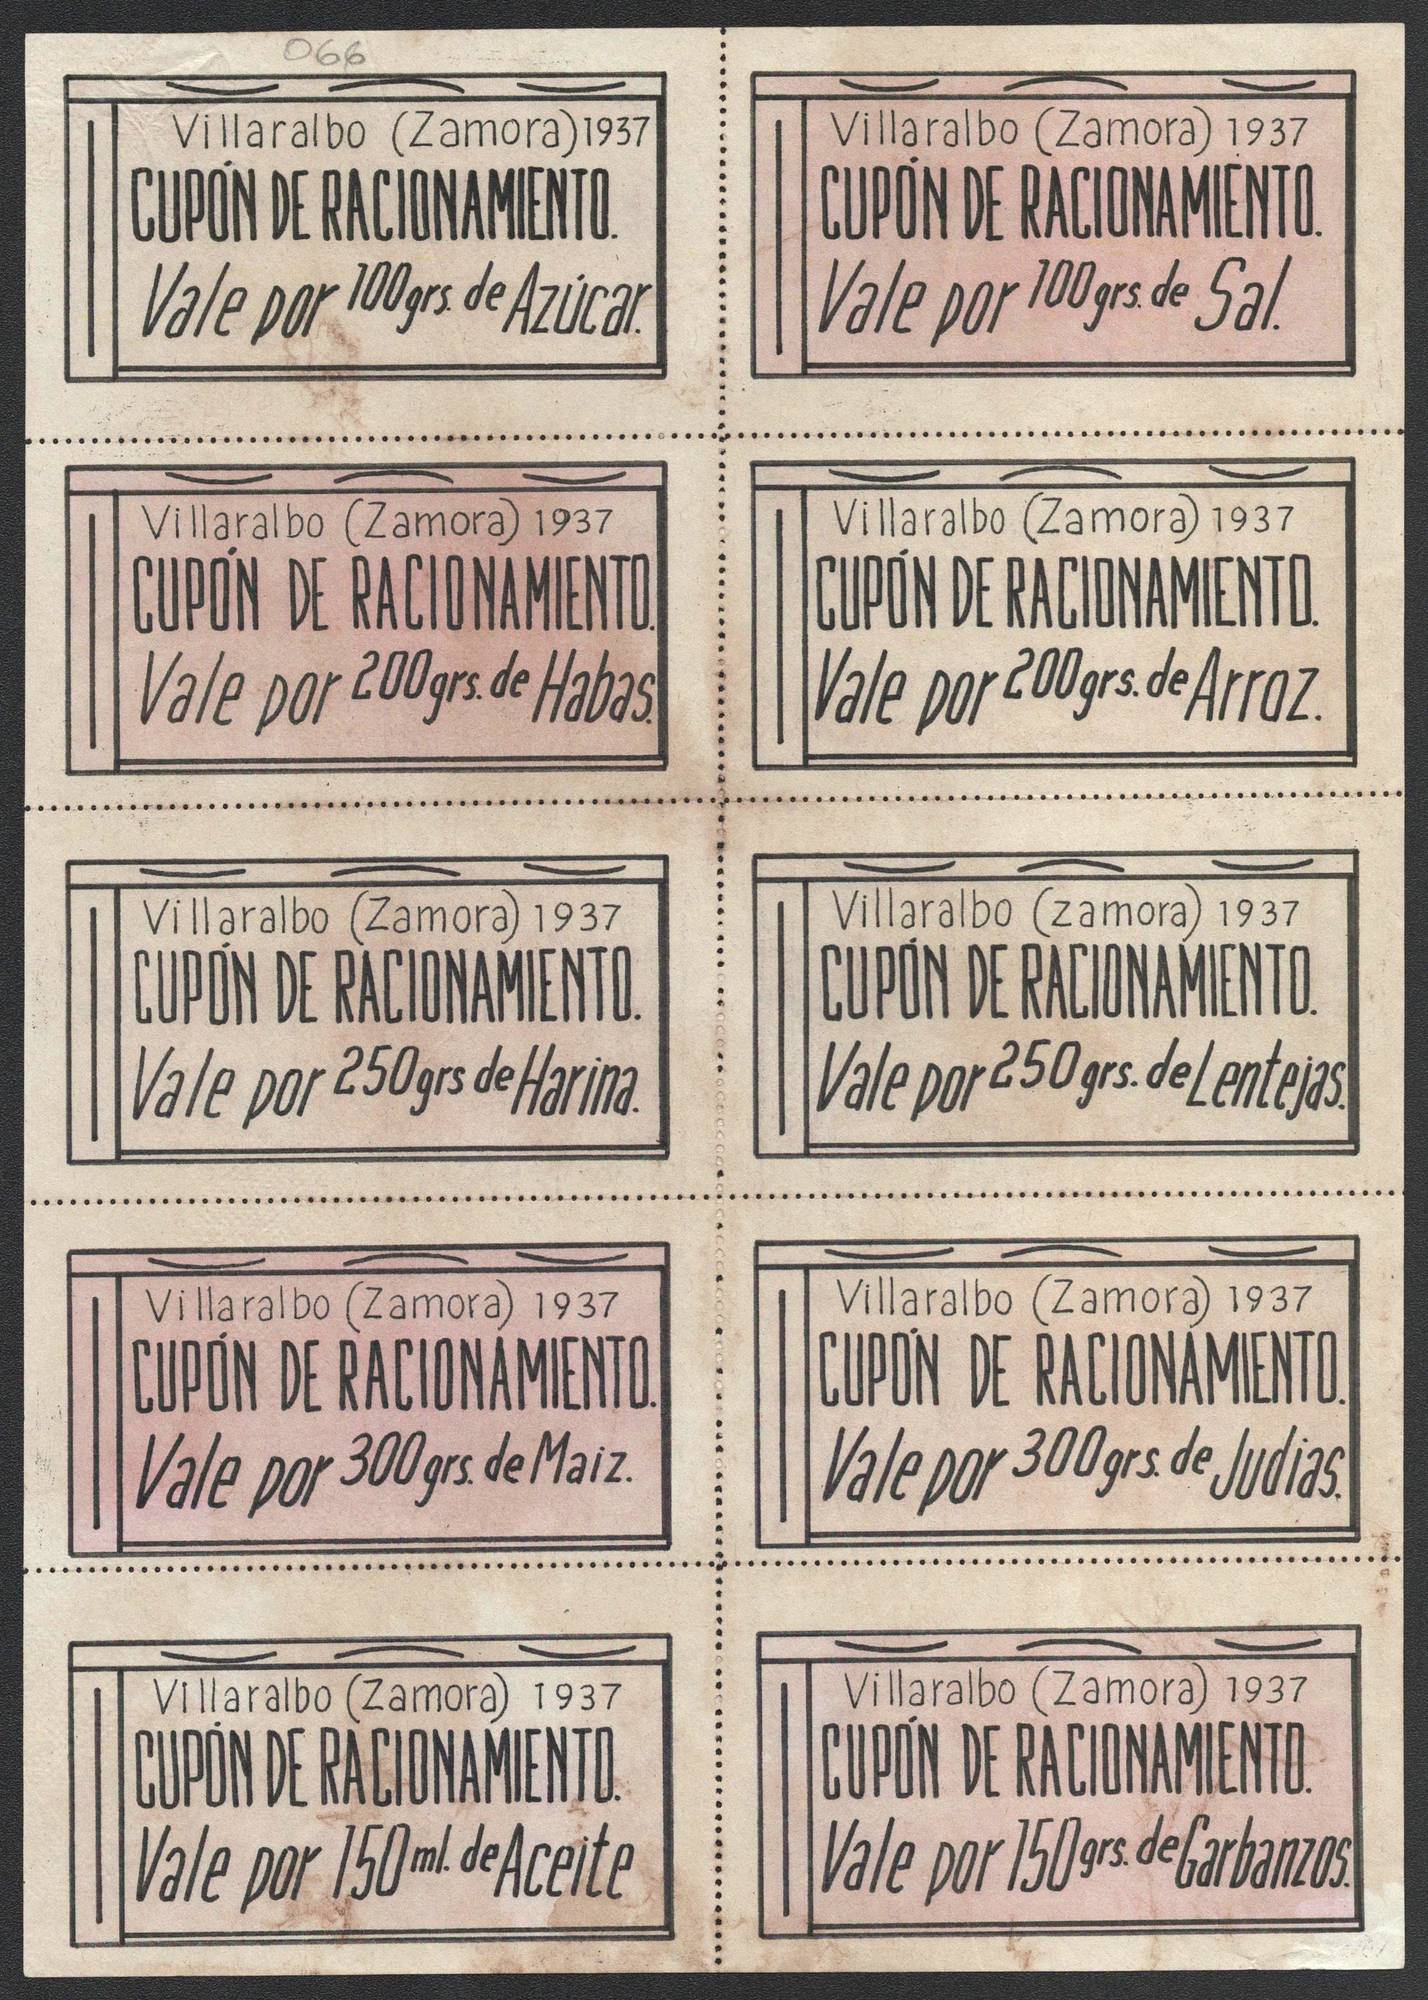 066
Villaralbo (Zamora) 1937
CUPÓN DE RACIONAMIENTO.
Vale por 100grs. de Azúcar.
Villaralbo (Zamora) 1937
CUPÓN DE RACIONAMIENTO.
Vale por 100grs. de Sal.
Villaralbo (Zamora) 1937
CUPÓN DE RACIONAMIENTO.
Vale por 200grs. de Habas.
Villaralbo (Zamora) 1937
CUPÓN DE RACIONAMIENTO.
Vale por 200grs. de Arroz.
Villaralbo (Zamora) 1937
CUPÓN DE RACIONAMIENTO.
Vale por 250grs de Harina.
Villaralbo (zamora) 1937
CUPÓN DE RACIONAMIENTO.
Vale por 250grs. de Lentejas.
Villaralbo (Zamora) 1937
CUPÓN DE RACIONAMIENTO.
Vale por 300grs. de Maiz.
Villaralbo (Zamora) 1937
CUPÓN DE RACIONAMIENTO.
Vale por 300grs. de Judias.
Villaralbo (Zamora) 1937
CUPÓN DE RACIONAMIENTO.
Vale por 150ml. de Aceite
Villaralbo (Zamora) 1937
CUPÓN DE RACIONAMIENTO.
Vale por 150grs. de Garbanzos.